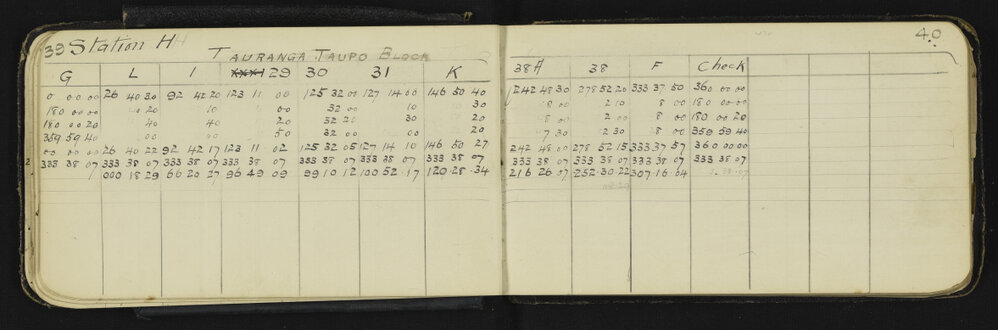 39 Station H 40
TAURANGA TAUPO BLOCK
G L I XXXI 29 30 31 K 38A 38 F Check
0 00 00 26 40 30 92 42 20 123 11 00 125 32 00 127 14 00 146 50 40 242 48 30 278 52 20 333 37 50 360 00 00
180 00 00 20 10 00 32 00 10 30 8 00 2 10 8 00 180 00 00
180 00 20 40 40 20 32 20 30 20 8 00 2 00 8 00 180 00 20
359 59 40 00 00 50 32 00 00 20 7 30 2 30 8 00 359 59 40
00 00 26 40 22 92 42 17 123 11 02 125 32 05 127 14 10 146 50 27 242 48 00 278 52 15 333 37 57 360 00 00
333 38 07 333 38 07 333 38 07 333 38 07 333 38 07 333 38 07 333 38 07 333 38 07 333 38 07 333 38 07 333 38 07
000 18 29 66 20 27 96 49 09 99 10 12 100 52 17 120 28 34 216 26 07 252 30 22 307 16 04